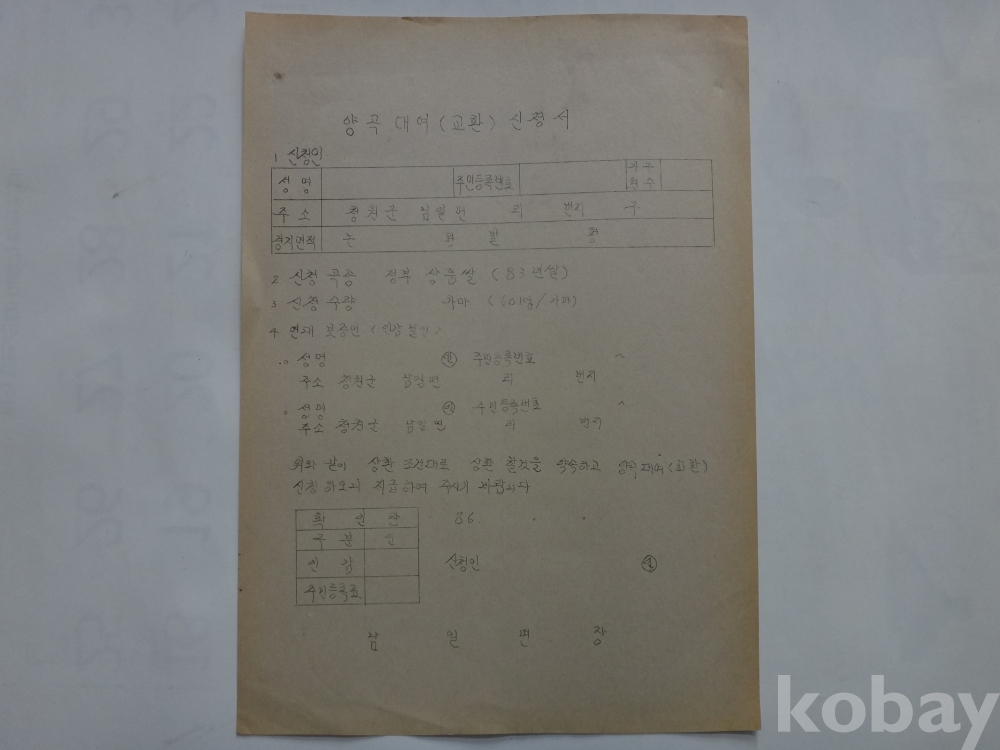 양곡 대여 (교환) 신청서
1 신청인
성명 주민등록번호 가구원수
주소 청원군 남일면 리 번지 구
경지면적 논 평 밭 평
2 신청 곡종 정부 상륙쌀 (83년쌀)
3 신청 수량 가마 (60kg/가마)
4 연대 보증인 (인감 필인)
성명 ㊞ 주민등록번호
주소 청원군 남일면 리 번지
성명 ㊞ 주민등록번호
주소 청원군 남일면 리 번지
위와 같이 상환 조건대로 상환 할것을 약속하고 양곡 대여 (교환)
신청 하오니 지급하여 주시기 바랍니다
확인란 86. . .
구분 인
인감 신청인 ㊞
주민등록표
남 일 면 장
kobay